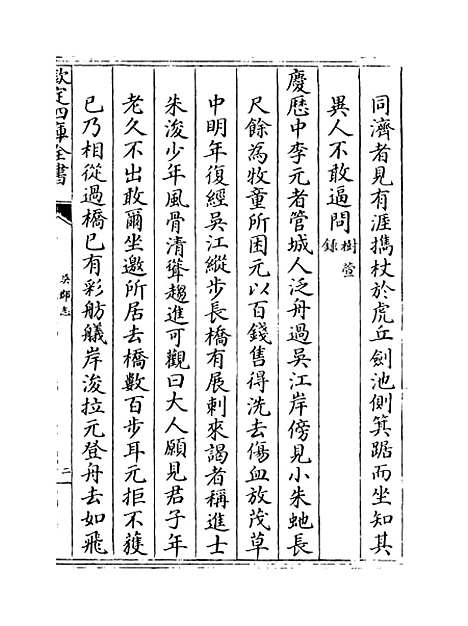 同濟者見有涯攜杖於虎丘劍池側箕踞而坐知其
異人不敢逼問樹萱録
慶歷中李元者管城人泛舟過吳江岸傍見小朱虵長
尺餘為牧童所困元以百錢售得洗去傷血放茂草
中明年復經吳江縱步長橋有展刺來謁者稱進士
朱浚少年風骨清聳趨進可觀曰大人願見君子年
老久不出敢爾坐邀所居去橋數百步耳元拒不獲
已乃相從過橋巳有彩舫艤岸浚拉元登舟去如飛
欽定四庫全書
吳郡志
二